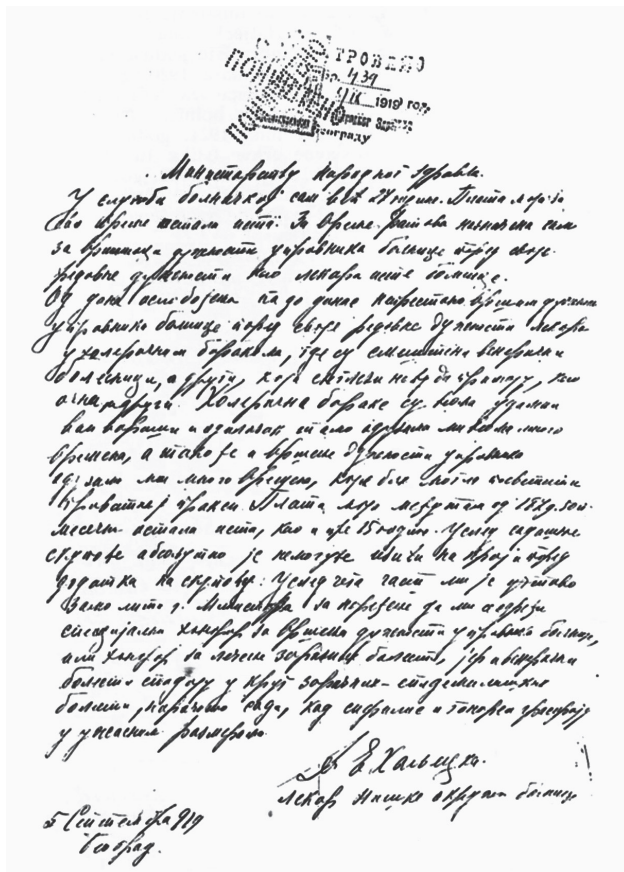 ПОНИШТЕНО
ТРОВАНО
Бр. 439
IX 1919 год.
Београду
Министарству Народног Здравља.
У служби болничкој сам већ 24 године. Плата моја за
ово време остала иста. За време ратова назначена сам
за вршиоца дужности управника болнице поред своје
редовне дужности као лекара исте болнице.
Од дана ослобођења па до данас непрестано вршим дужност
управника болнице поред своје редовне дужности лекара
у холерачним баракама, где су смештени венерични
болесници, а други, који
другу. Холерична бараке су
ван вароши и одлазак
времена, а такође и вршење дужности управника
одузело ми много времена, које бих могао посветити
приватној пракси. Плата моја међутим од
месечно остала иста, као и пре 15 година. Услед садашње
скупоће абсолутно је немогуће живети на њој и поред
додатка на скупоћу. Услед чега част ми је учтиво
замолити г. Министра за наређење да ми се одреди
специјални хонорар за вршење дужности управника болнице,
или хонорар за лечење заразних болести, јер и венеричне
болести спадају у круг заразних - епидемијских
болести, нарочито сада, кад сифилис и гонореја
у ужасним размерама.
Др Е. Халецка.
лекар Нишке окружне болнице
5 Септембра 919
Београд.